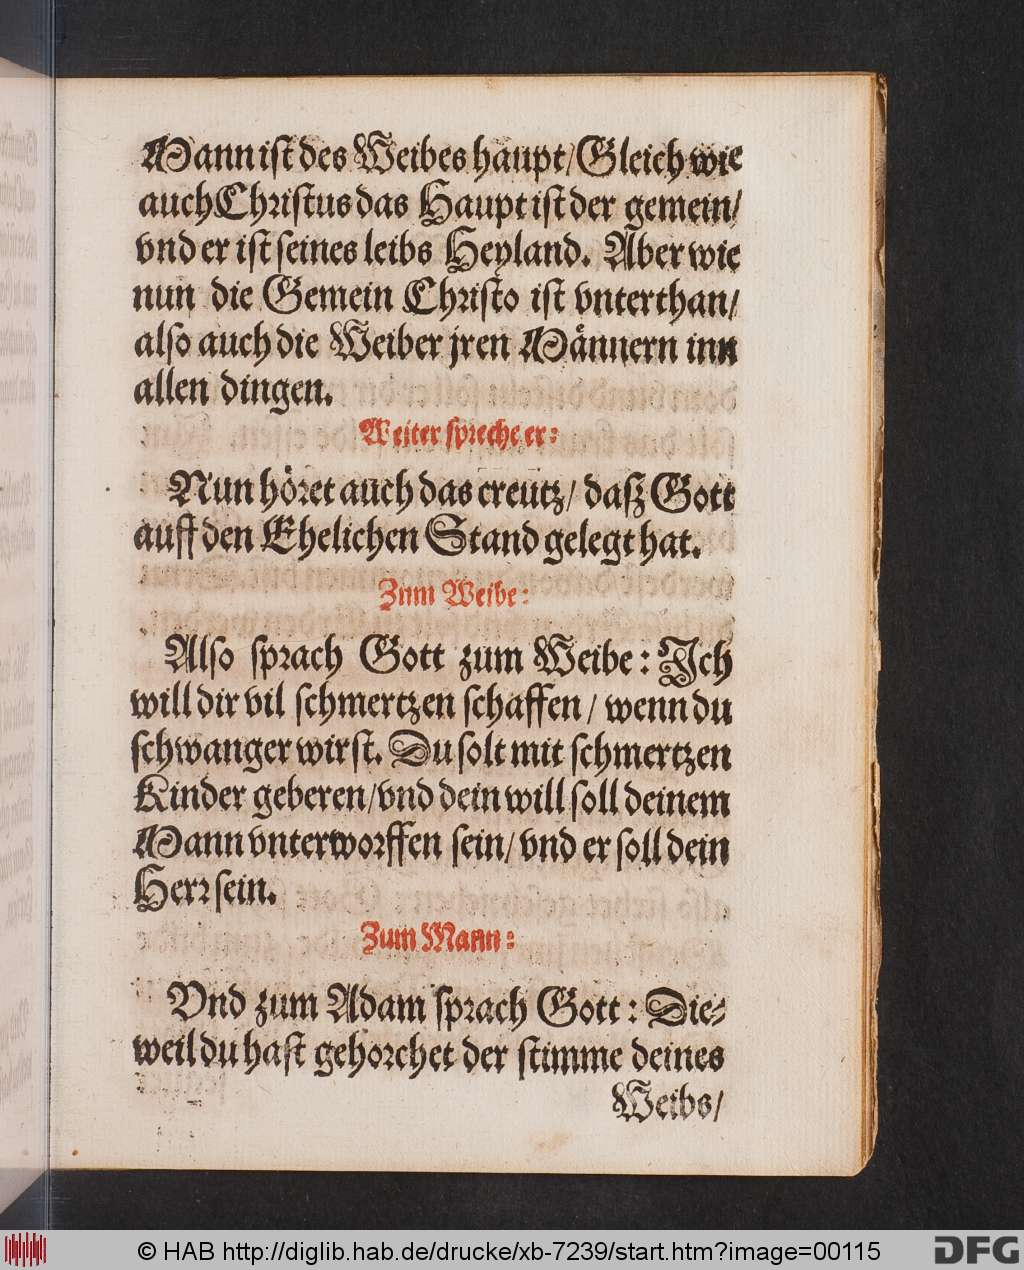 Mann ist des Weibes haupt/ Gleich wie
auch Christus das Haupt ist der gemein/
vnd er ist seines leibs Heyland. Aber wie
nun die Gemein Christo ist vnterthan/
also auch die Weiber jren Männern inn
allen dingen.
Weiter spreche er:
Nun höret auch das creutz/ dasz Gott
auff den Ehelichen Stand gelegt hat.
Zum Weibe:
Also sprach Gott zum Weibe: Ich
will dir vil schmertzen schaffen/ wenn du
schwanger wirst. Du solt mit schmertzen
Kinder geberen/ vnd dein will soll deinem
Mann vnterworffen sein/ vnd er soll dein
Herr sein.
Zum Mann:
Vnd zum Adam sprach Gott: Die-
weil du hast gehorchet der stimme deines
Weibs/
© HAB http://diglib.hab.de/drucke/xb-7239/start.htm?image=00115
DFG